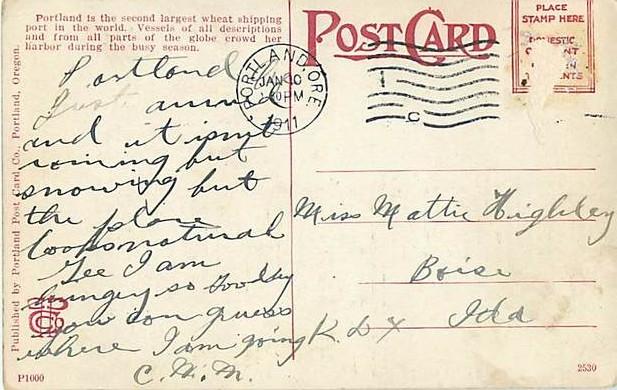 Portland is the second largest wheat shipping
port in the world. Vessels of all descriptions
and from all parts of the globe crowd her
harbor during the busy season.
POST CARD
PLACE
STAMP HERE
DOMESTIC
PORTLAND, ORE
JAN 30
PM
1911
Portland
Just
and it isnt
raining but
snowing but
the place
looks natural
Gee I am
hungry so Goodby
you can guess
where I am going
C. M. M.
Miss Mattie Highley
Boise
Ida
Published by Portland Post Card Co., Portland, Oregon.
P1000
2530